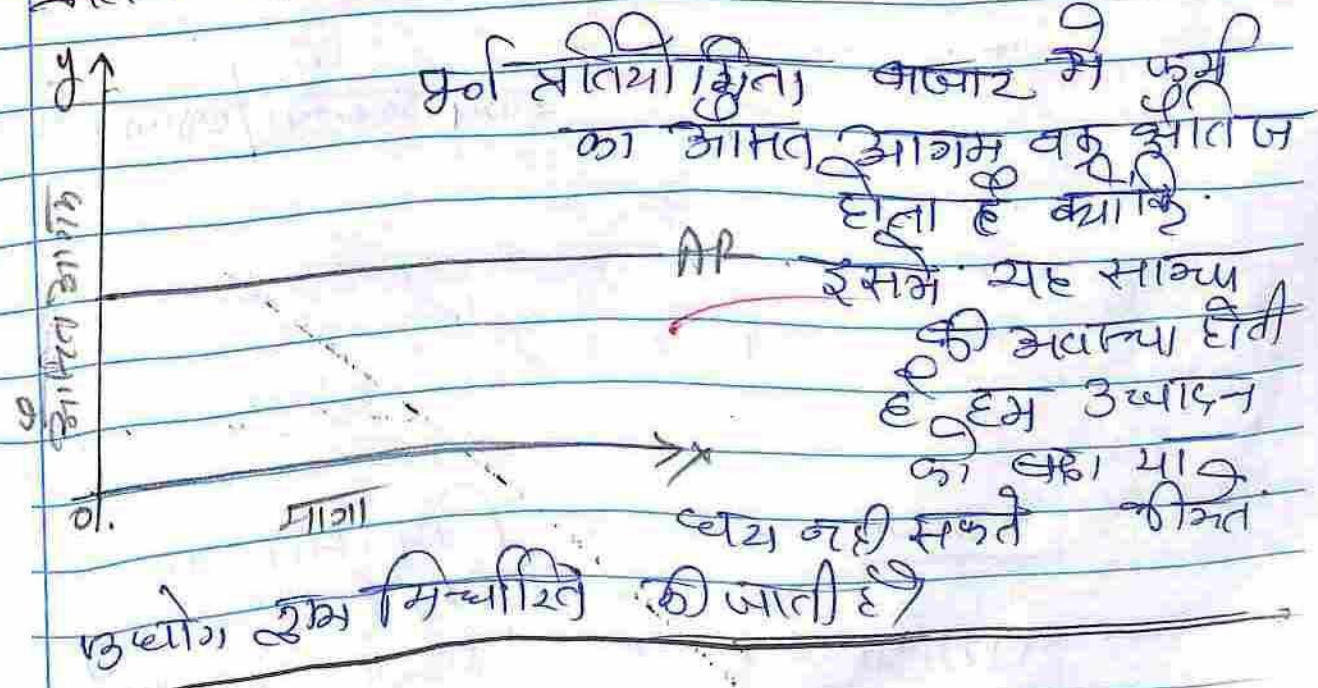 y
पूर्ण प्रतियोगिता बाजार मे फर्म
का औसत आगम वक्र क्षैतिज
होता है क्योकि
AR इसमे यह साम्य
की अवस्था होती
है हम उत्पादन
को बढा या
x
0 मागा घटा नही सकते कीमत
उधोग द्वारा निर्धारित की जाती है।